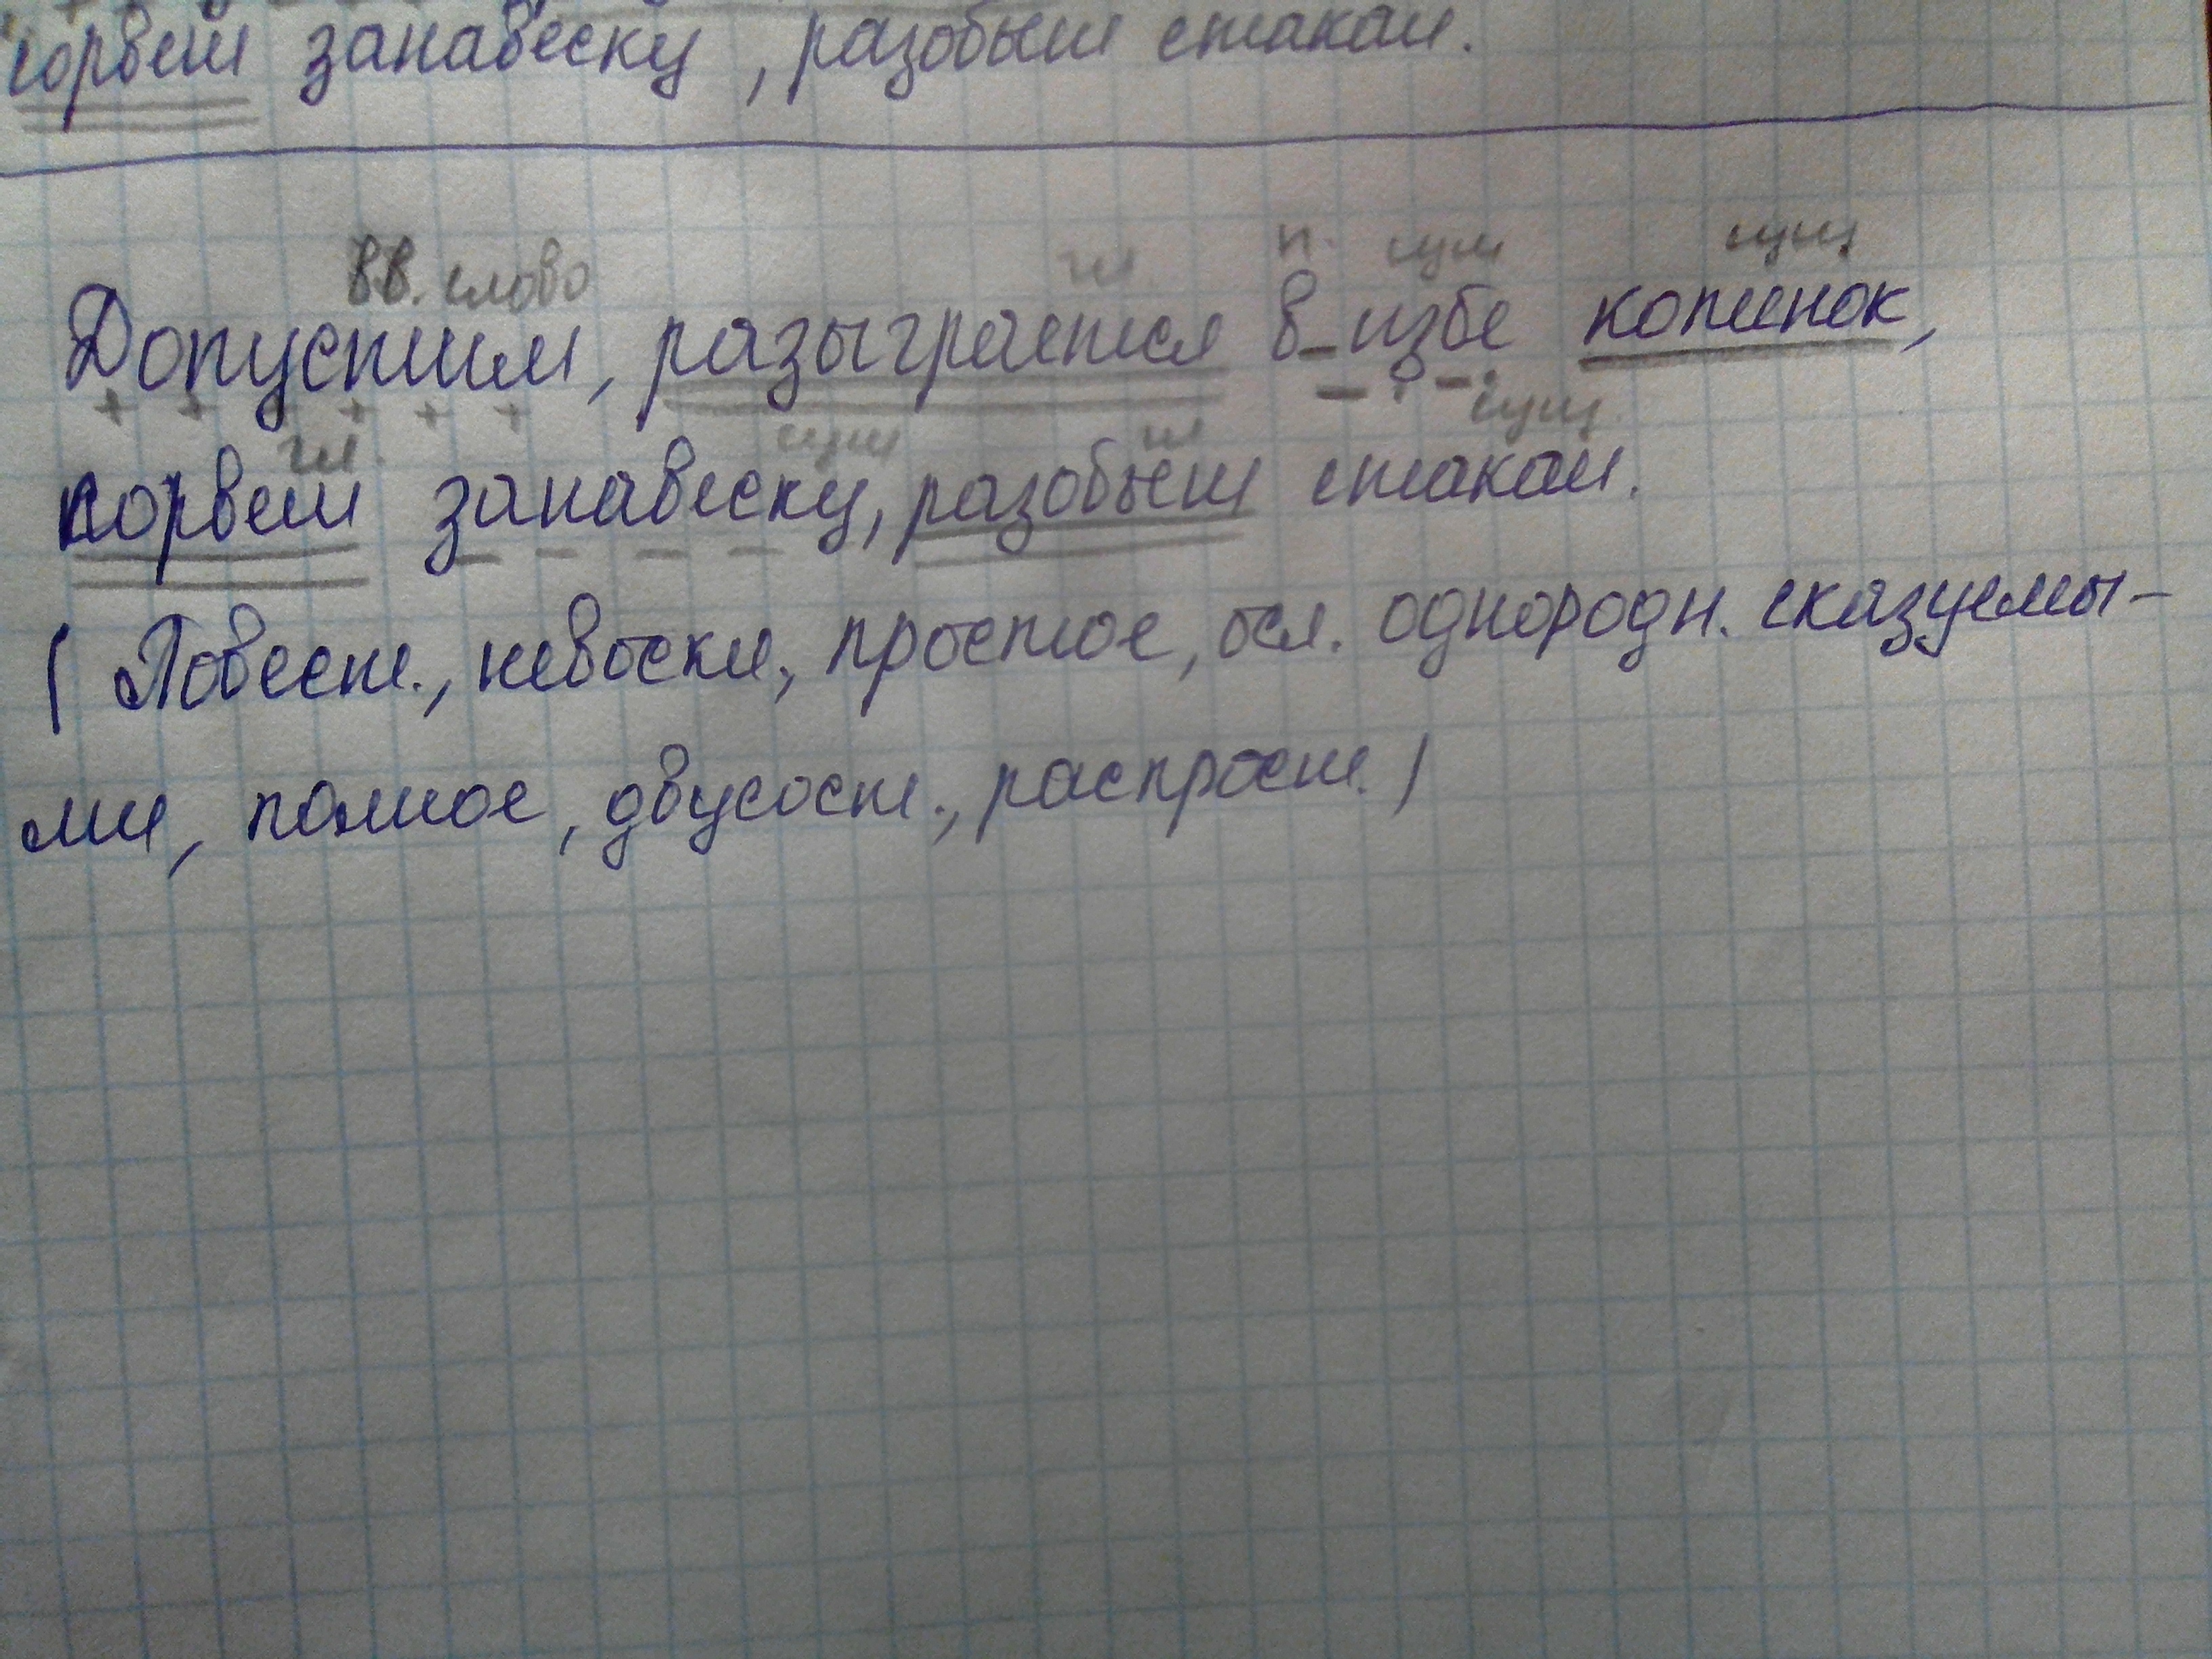 сорвет занавеску, разобьет стакан.
вв. слово гл. п. сущ сущ
Допустим, разыграется в избе котенок,
гл. сущ гл сущ.
сорвет занавеску, разобьет стакан.
( Повест., невоскл., простое, осл. однородн. сказуемы-
ми, полное, двусост., распрост. )